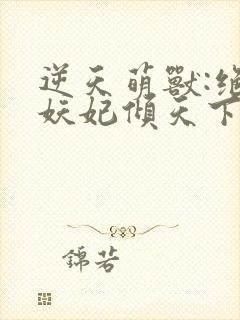 逆天萌獸:絕
妖妃傾天下
錦若